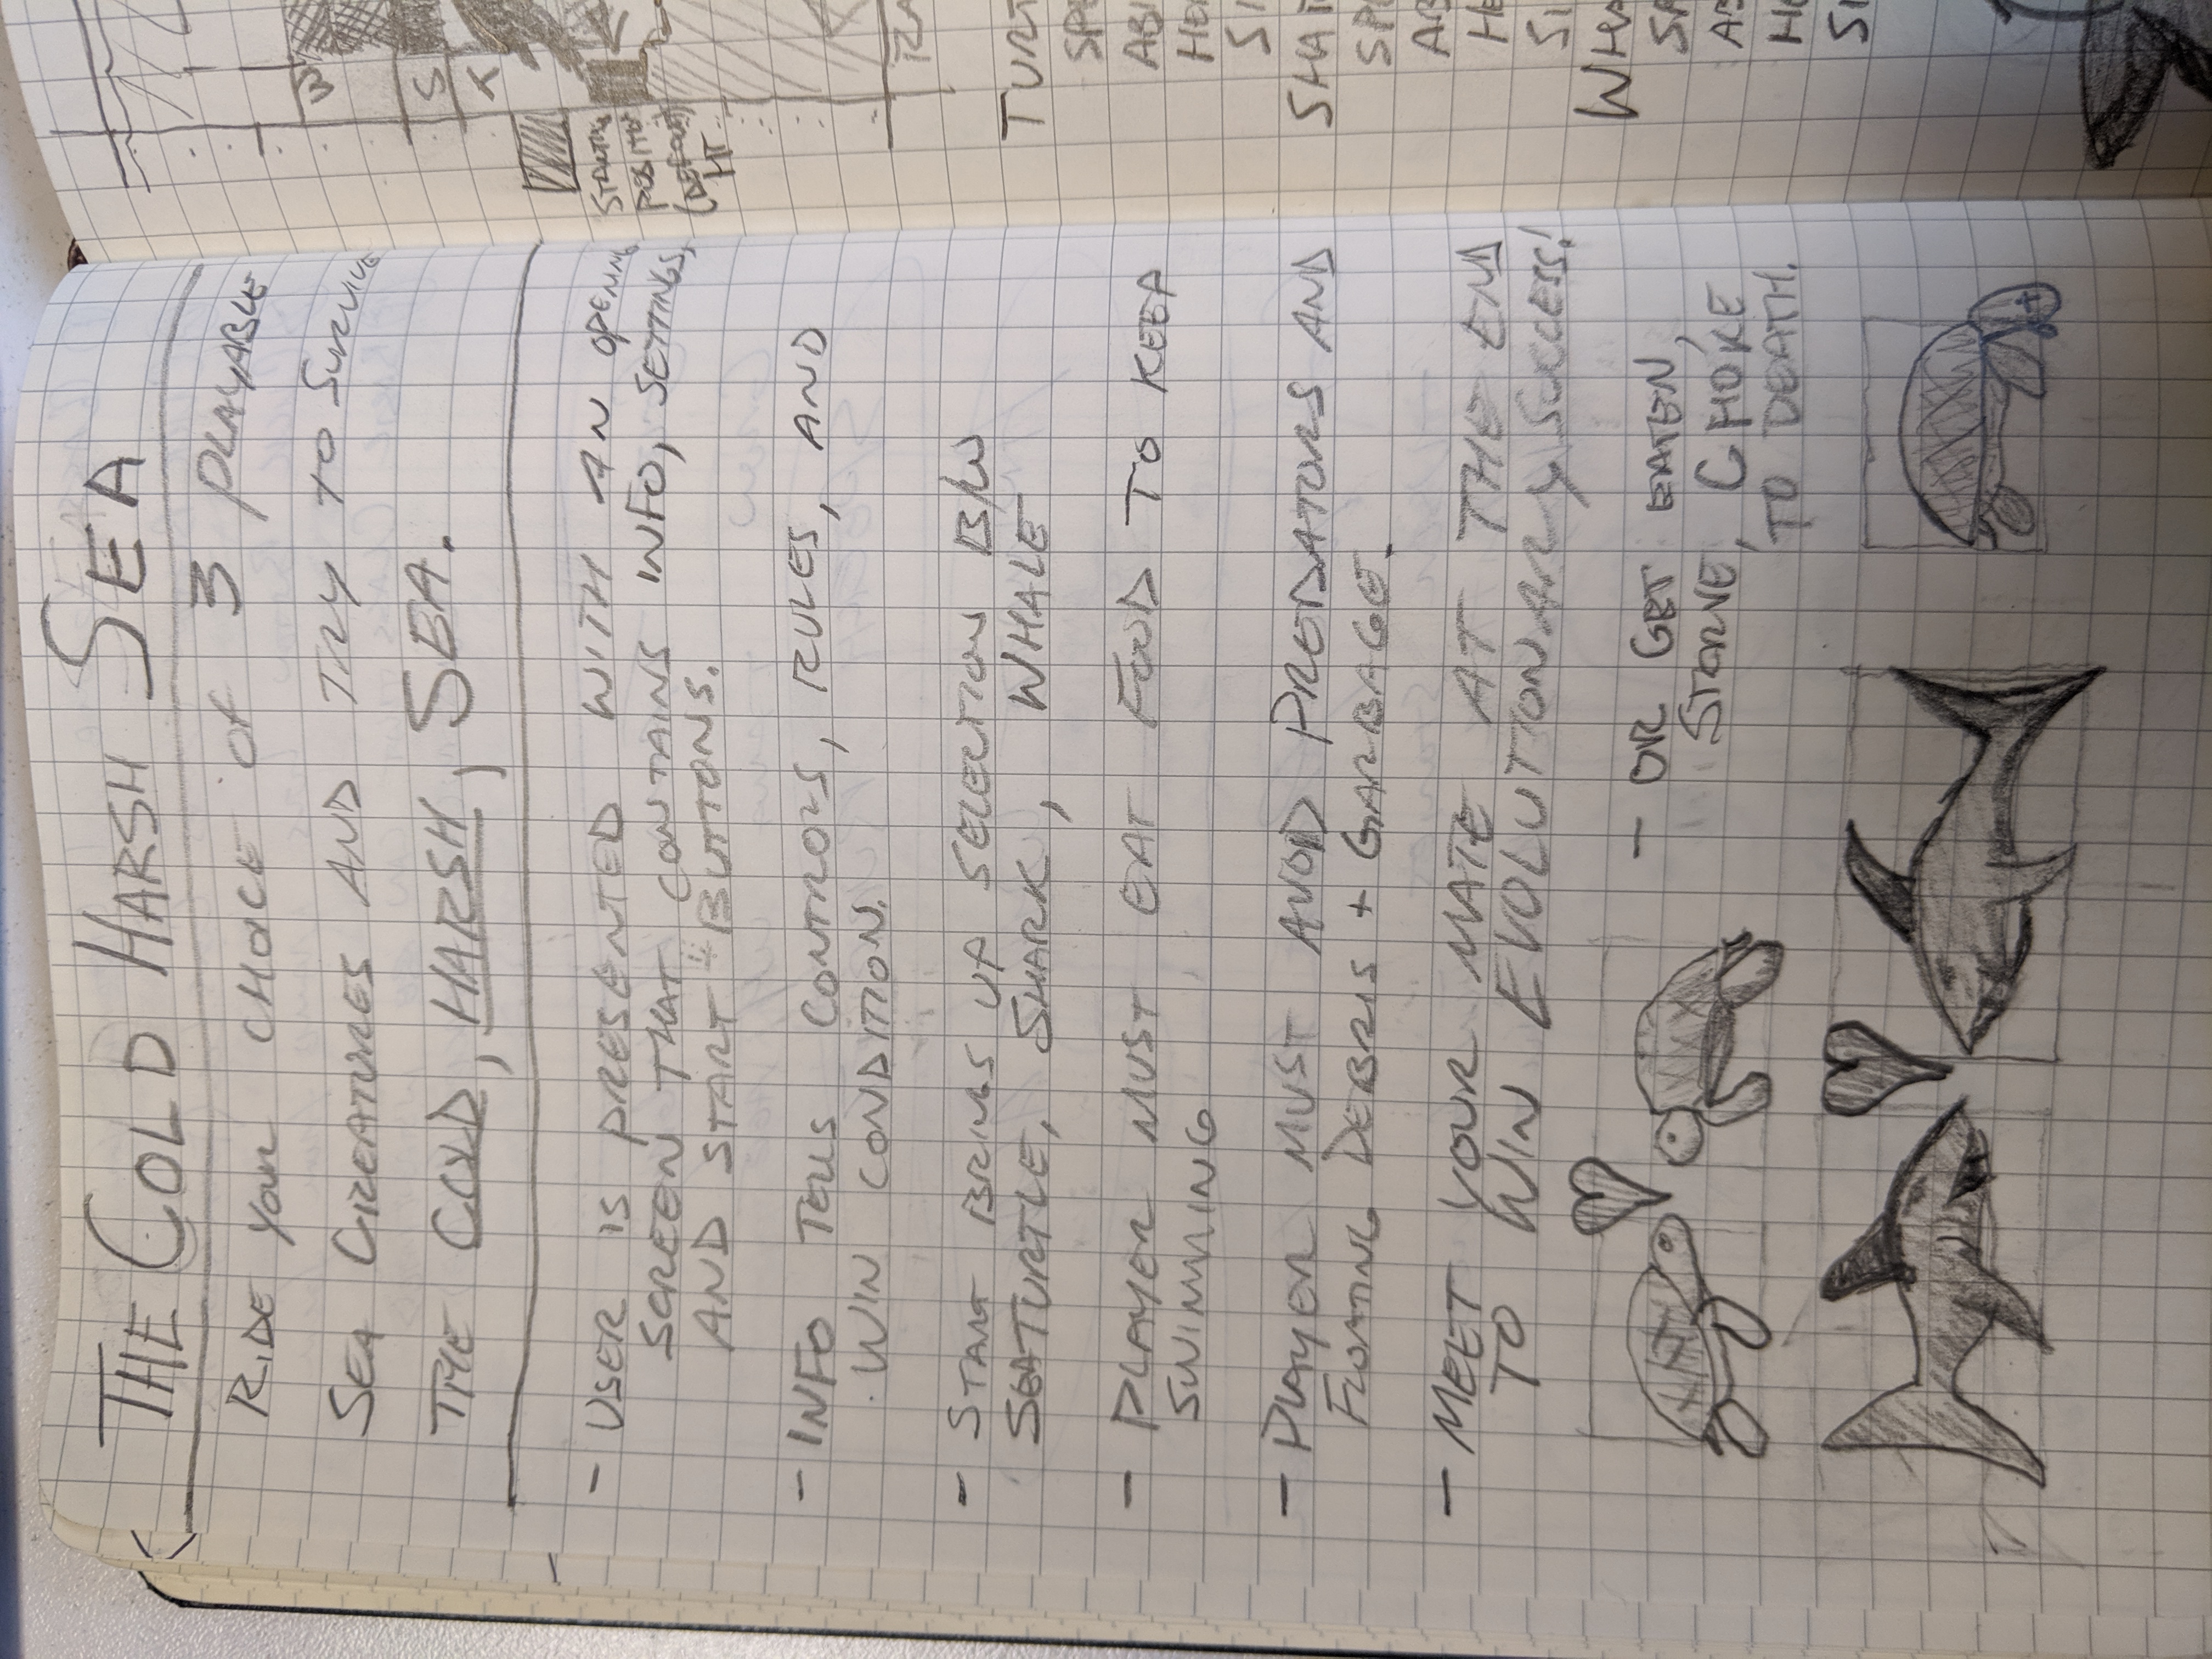 THE COLD HARSH SEA
RIDE YOUR CHOICE OF 3 PLAYABLE
SEA CREATURES AND TRY TO SURVIVE
THE COLD, HARSH, SEA.
- USER IS PRESENTED WITH AN OPENING
SCREEN THAT CONTAINS INFO, SETTINGS,
AND START BUTTONS.
- INFO TELLS CONTROLS, RULES, AND
WIN CONDITION.
- START BRINGS UP SELECTION B/W
SEATURTLE, SHARK, WHALE
- PLAYER MUST EAT FOOD TO KEEP
SWIMMING
- PLAYER MUST AVOID PREDATORS AND
FLOATING DEBRIS + GARBAGE.
- MEET YOUR MATE AT THE END
TO WIN EVOLUTIONARY SUCCESS!
- OR GET EATEN,
STARVE, CHOKE
TO DEATH.
W
S
T
STARTING
POSITION
(DEFAULT)
HT
RA
TURT
SPE
ABI
HEA
SI
SHAR
SPE
AB
HE
SI
WHA
SP
AB
HE
SI